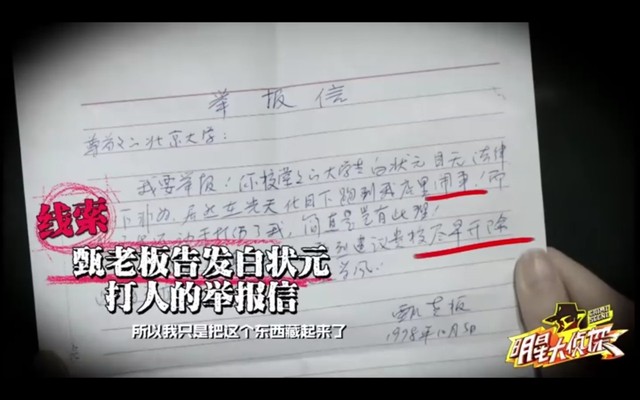 举报信
尊敬之北京大学：
我要举报！你校堂之之大学生白状元目无法律
居然在光天化日下跑到我店里闹事！而
打伤了我，简直是岂有此理！
建议贵校尽早开除
线索
甄老板告发白状元
打人的举报信
甄老板
1978年10月5日
所以我只是把这个东西藏起来了
CRIME SCENE
明星大侦探